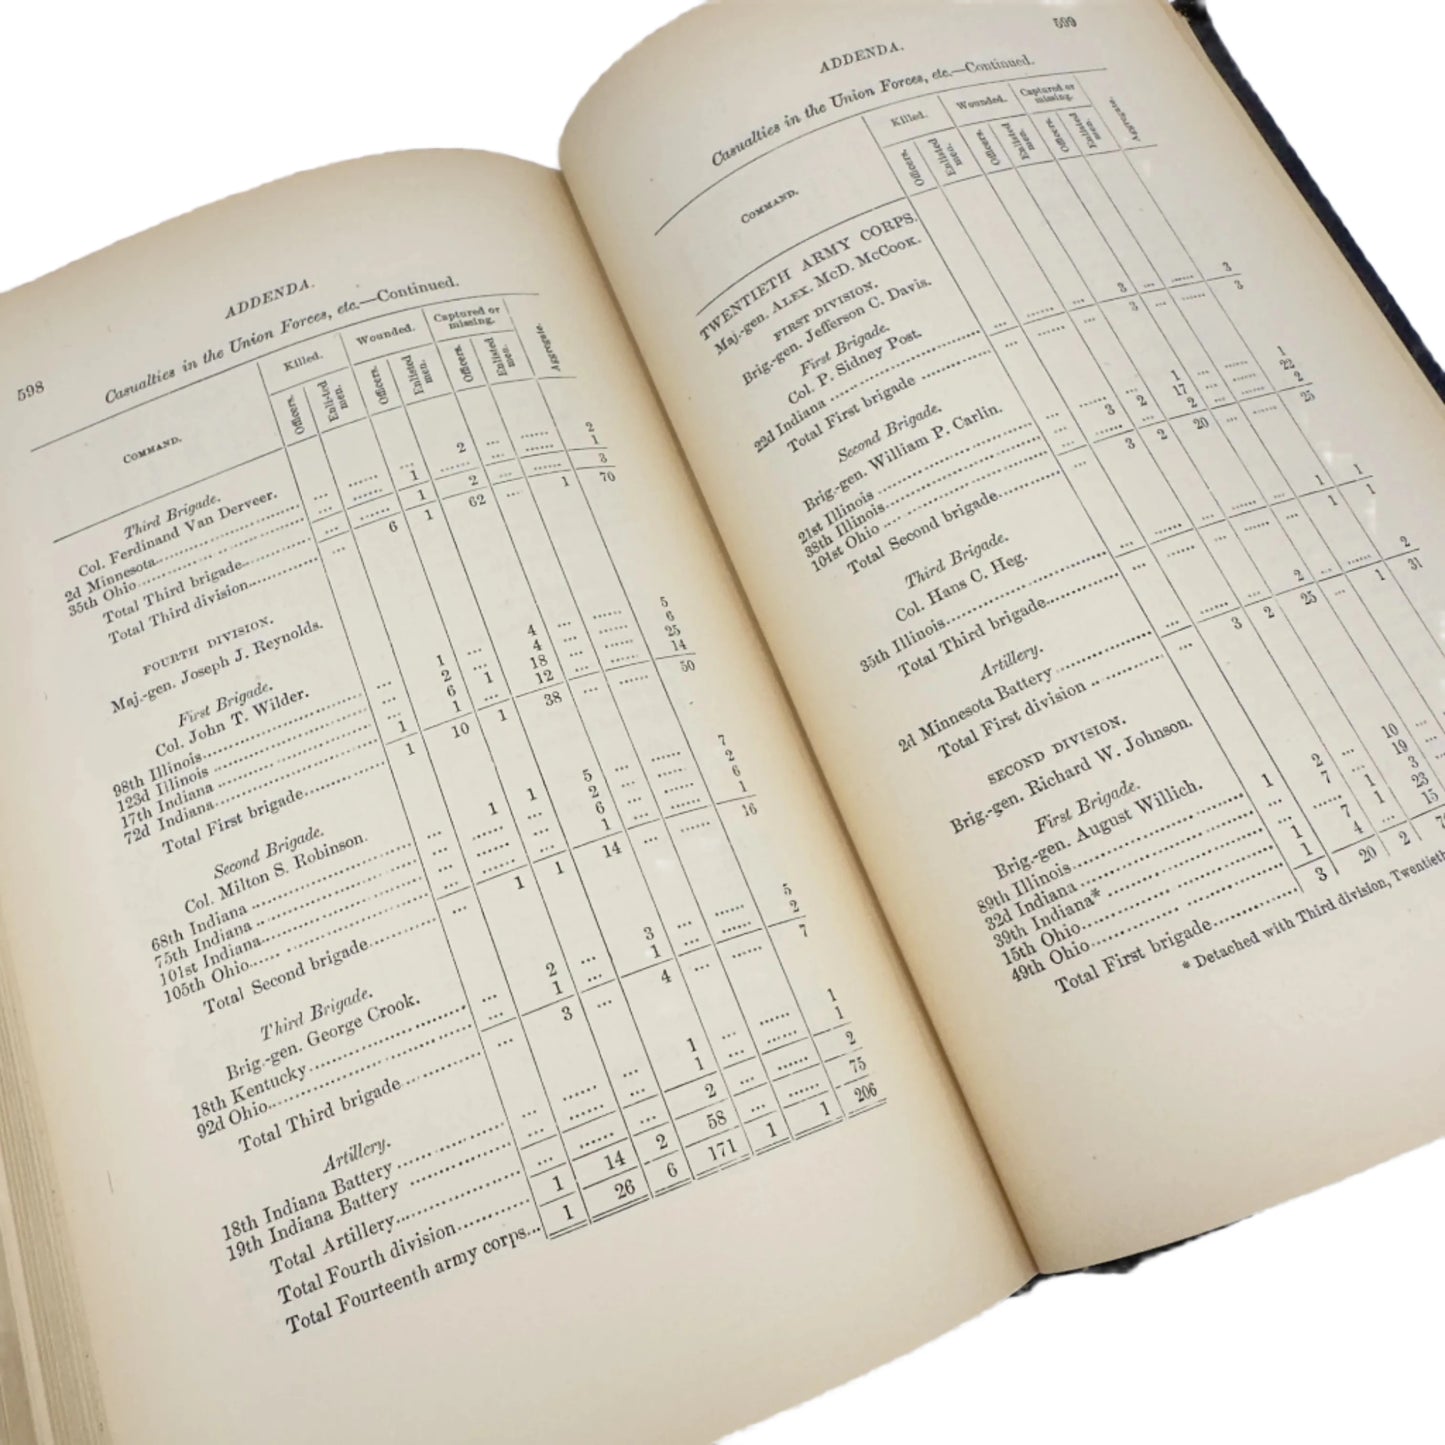 598
ADDENDA.
Casualties in the Union Forces, etc.—Continued.
COMMAND.
Killed. Wounded. Captured or missing. Aggregate.
Officers. Enlisted men. Officers. Enlisted men. Officers. Enlisted men.
Third Brigade.
Col. Ferdinand Van Derveer.
2d Minnesota ... ...... ... 2 ... ...... 2
35th Ohio ... ...... 1 ...... ... ...... 1
Total Third brigade ... ...... 1 2 ... ...... 3
Total Third division ... 6 1 62 ... 1 70
FOURTH DIVISION.
Maj.-gen. Joseph J. Reynolds.
First Brigade.
Col. John T. Wilder.
98th Illinois ... 1 ... 4 ... ...... 5
123d Illinois ... 2 ... 4 ... ...... 6
17th Indiana ... 6 1 18 ... ...... 25
72d Indiana 1 1 ... 12 ... ...... 14
Total First brigade 1 10 1 38 ... ...... 50
Second Brigade.
Col. Milton S. Robinson.
68th Indiana ... 1 1 5 ... ...... 7
75th Indiana ... ...... ... 2 ... ...... 2
101st Indiana ... ...... ... 6 ... ...... 6
105th Ohio ... ...... ... 1 ... ...... 1
Total Second brigade ... 1 1 14 ... ...... 16
Third Brigade.
Brig.-gen. George Crook.
18th Kentucky ... 2 ... 3 ... ...... 5
92d Ohio ... 1 ... 1 ... ...... 2
Total Third brigade ... 3 ... 4 ... ...... 7
Artillery.
18th Indiana Battery ... ...... ... 1 ... ...... 1
19th Indiana Battery ... ...... ... 1 ... ...... 1
Total Artillery ... ...... ... 2 ... ...... 2
Total Fourth division 1 14 2 58 ... ...... 75
Total Fourteenth army corps 1 26 6 171 1 1 206
599
ADDENDA.
Casualties in the Union Forces, etc.—Continued.
COMMAND.
Killed. Wounded. Captured or missing. Aggregate.
Officers. Enlisted men. Officers. Enlisted men. Officers. Enlisted men.
TWENTIETH ARMY CORPS.
Maj.-gen. ALEX. MCD. MCCOOK.
FIRST DIVISION.
Brig.-gen. Jefferson C. Davis.
First Brigade.
Col. P. Sidney Post.
22d Indiana ... ...... ... 3 ... ...... 3
Total First brigade ... ...... ... 3 ... ...... 3
Second Brigade.
Brig.-gen. William P. Carlin.
21st Illinois ... ...... ... 1 ... ...... 1
38th Illinois ... 3 2 17 ... ...... 22
101st Ohio ... ...... ... 2 ... ...... 2
Total Second brigade ... 3 2 20 ... ...... 25
Third Brigade.
Col. Hans C. Heg.
35th Illinois ... ...... ... ...... ... 1 1
Total Third brigade ... ...... ... ...... ... 1 1
Artillery.
2d Minnesota Battery ... ...... ... 2 ... ...... 2
Total First division ... 3 2 25 ... 1 31
SECOND DIVISION.
Brig.-gen. Richard W. Johnson.
First Brigade.
Brig.-gen. August Willich.
89th Illinois 1 2 ... 10 ...
32d Indiana ... 7 1 19
39th Indiana* ... ...... ... 3
15th Ohio 1 7 1 23
49th Ohio 1 4 ... 15
Total First brigade 3 20 2
* Detached with Third division, Twentieth